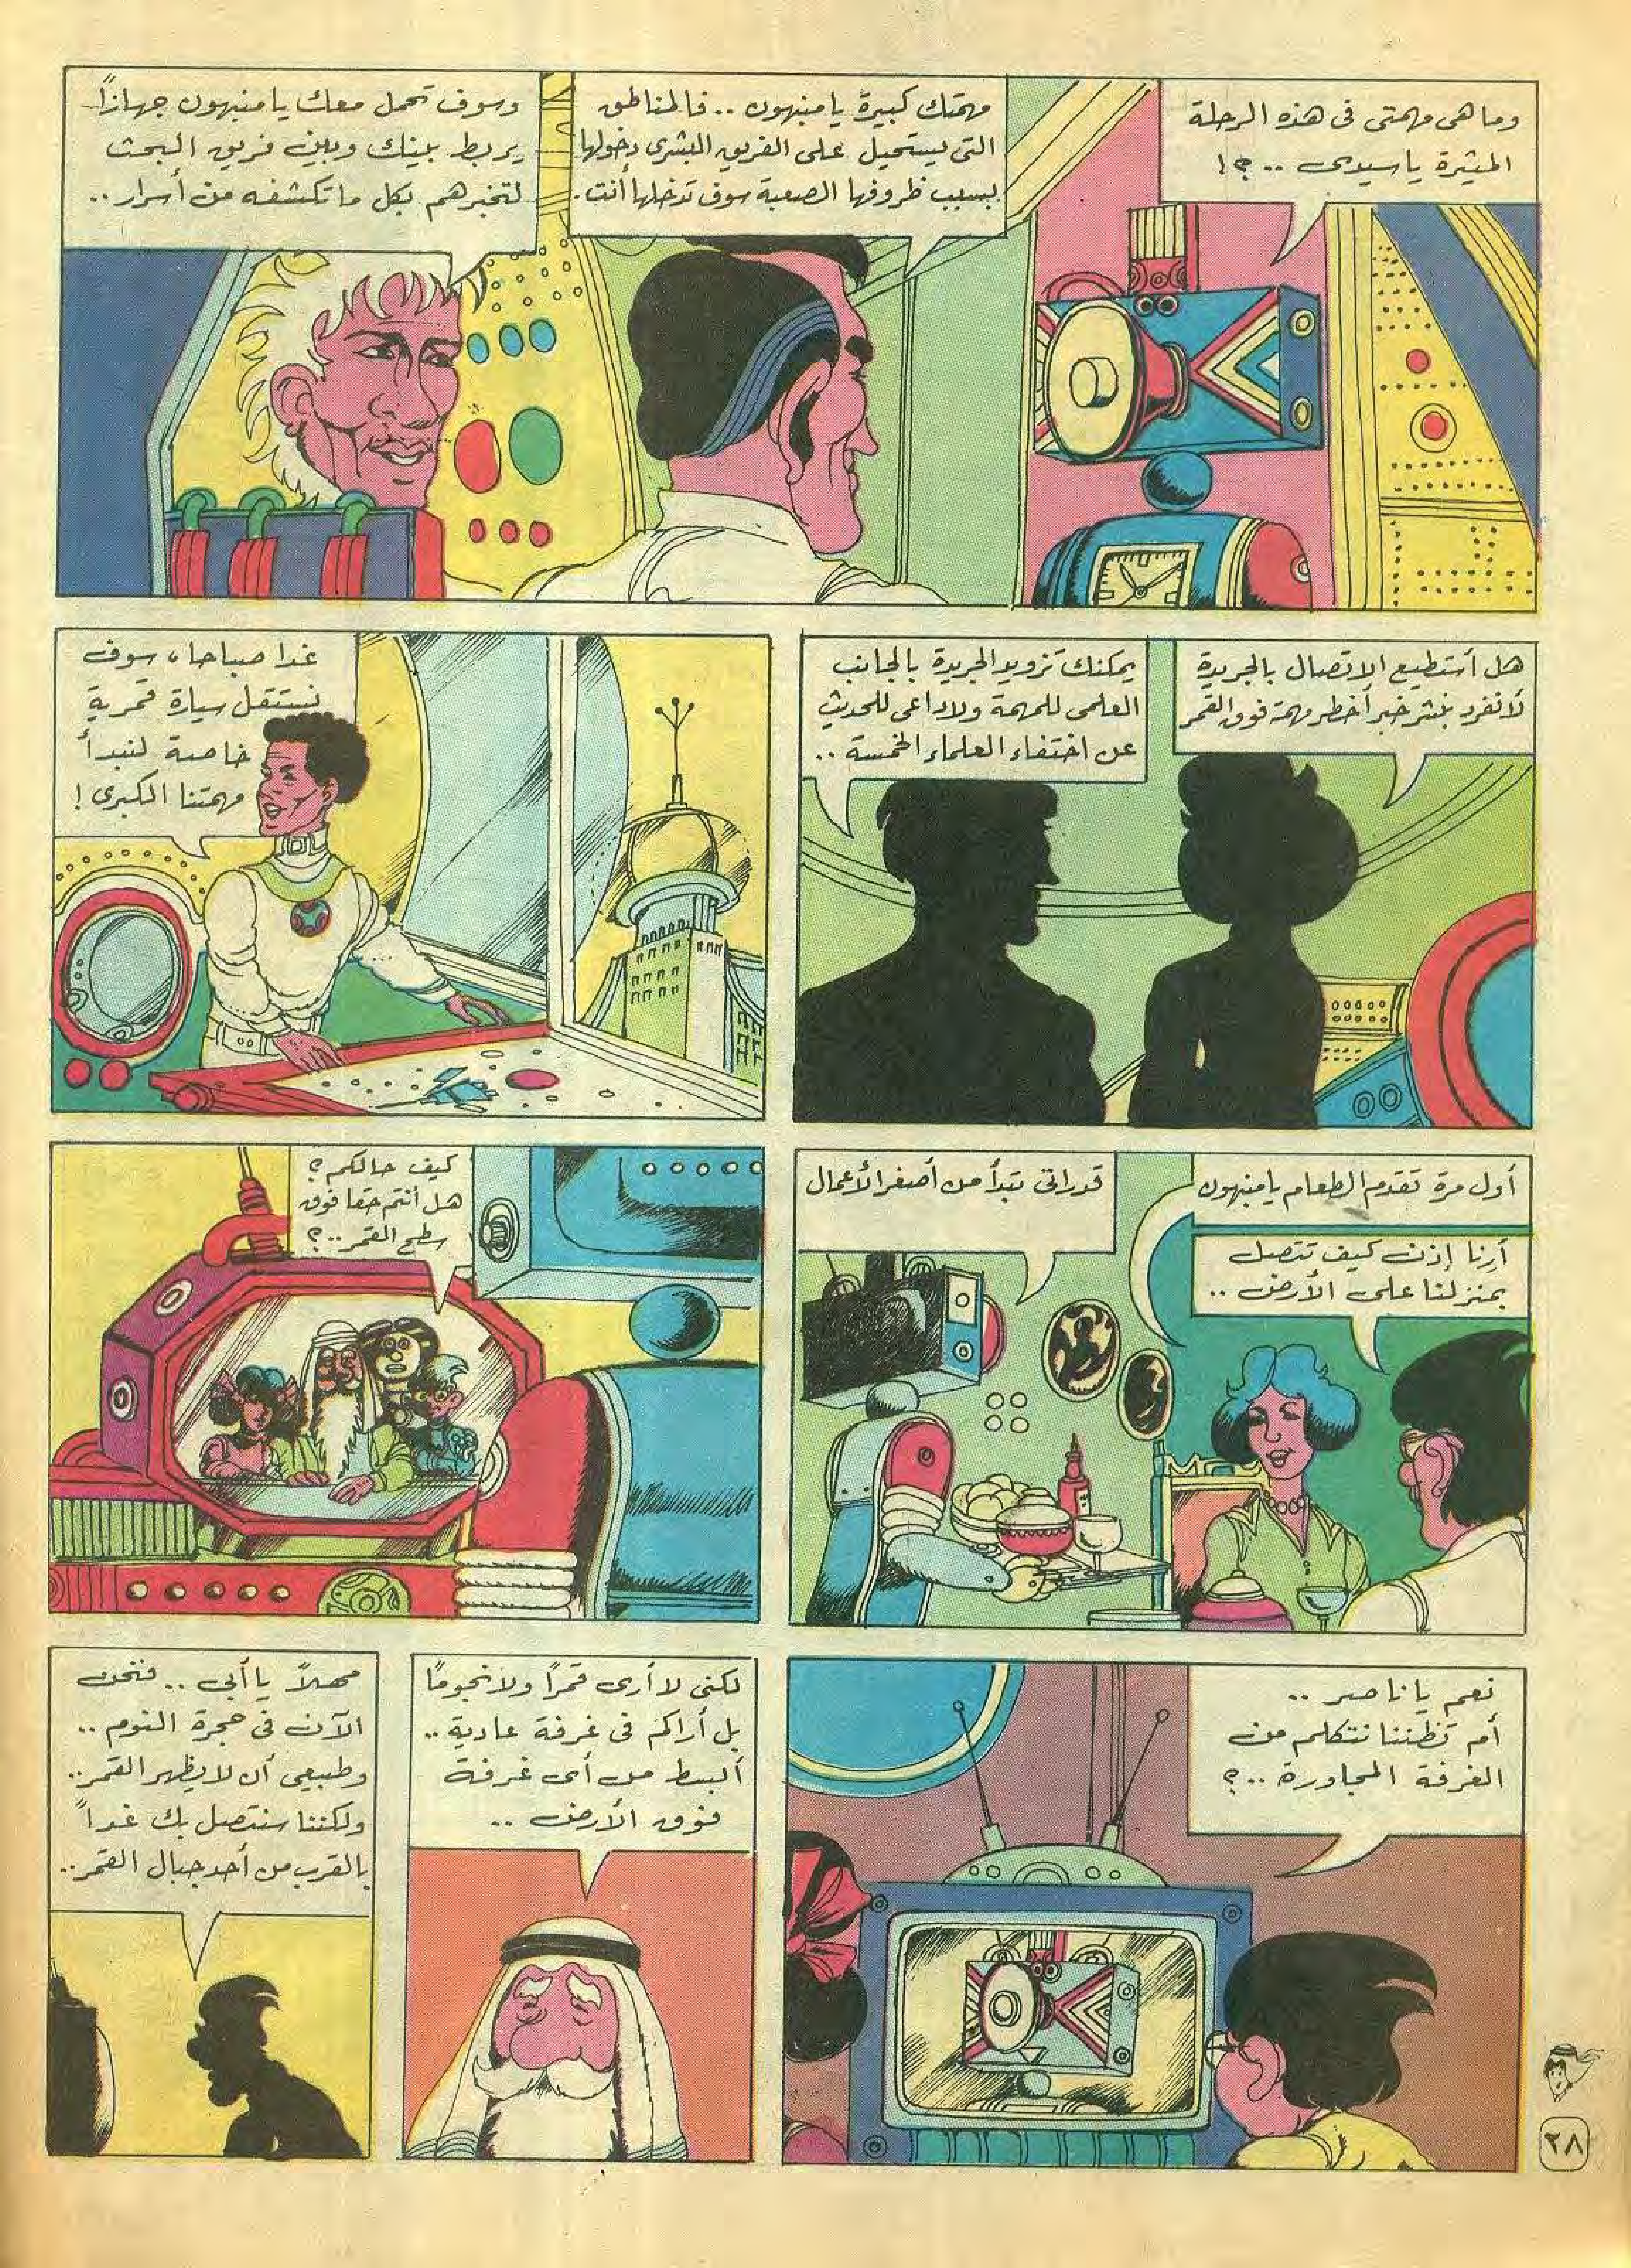 وما هى مهمتى فى هذه الرحلة
المثيرة يا سيدى .. ؟!
مهمتك كبيرة يا منبهون .. فالمناطق
التى يستحيل على الفريق البشرى دخولها
بسبب ظروفها الصعبة سوف تدخلها أنت.
وسوف تحمل معك يا منبهون جهازاً
يربط بينك وبين فريق البحث
لتخبرهم بكل ما تكشفه من أسرار ..
هل أستطيع الاتصال بالجريدة
لأنفرد بنشر خبر أخطر مهمة فوق القمر
يمكنك تزويد الجريدة بالجانب
العلمى للمهمة ولا داعى للحديث
عن اختفاء العلماء الخمسة ..
غدا صباحا، سوف
نستقل سيارة قمرية
خاصة لنبدأ
مهمتنا الكبرى !
أول مرة تقدم الطعام يا منبهون
أرنا إذن كيف تتصل
بمنزلنا على الأرض ..
قدراتى تبدأ من أصغر الأعمال
كيف حالكم ؟
هل أنتم حقا فوق
سطح القمر .. ؟
نعم يا ناصر ..
أم تظننا نتكلم من
الغرفة المجاورة .. ؟
لكنى لا أرى قمراً ولا نجوماً
بل أراكم فى غرفة عادية ..
أبسط من أى غرفة
فوق الأرض ..
مهلاً يا أبى .. فنحن
الآن فى حجرة النوم ..
وطبيعى أن لا يظهر القمر ..
ولكننا سنتصل بك غداً
بالقرب من أحد جبال القمر ..
٢٨